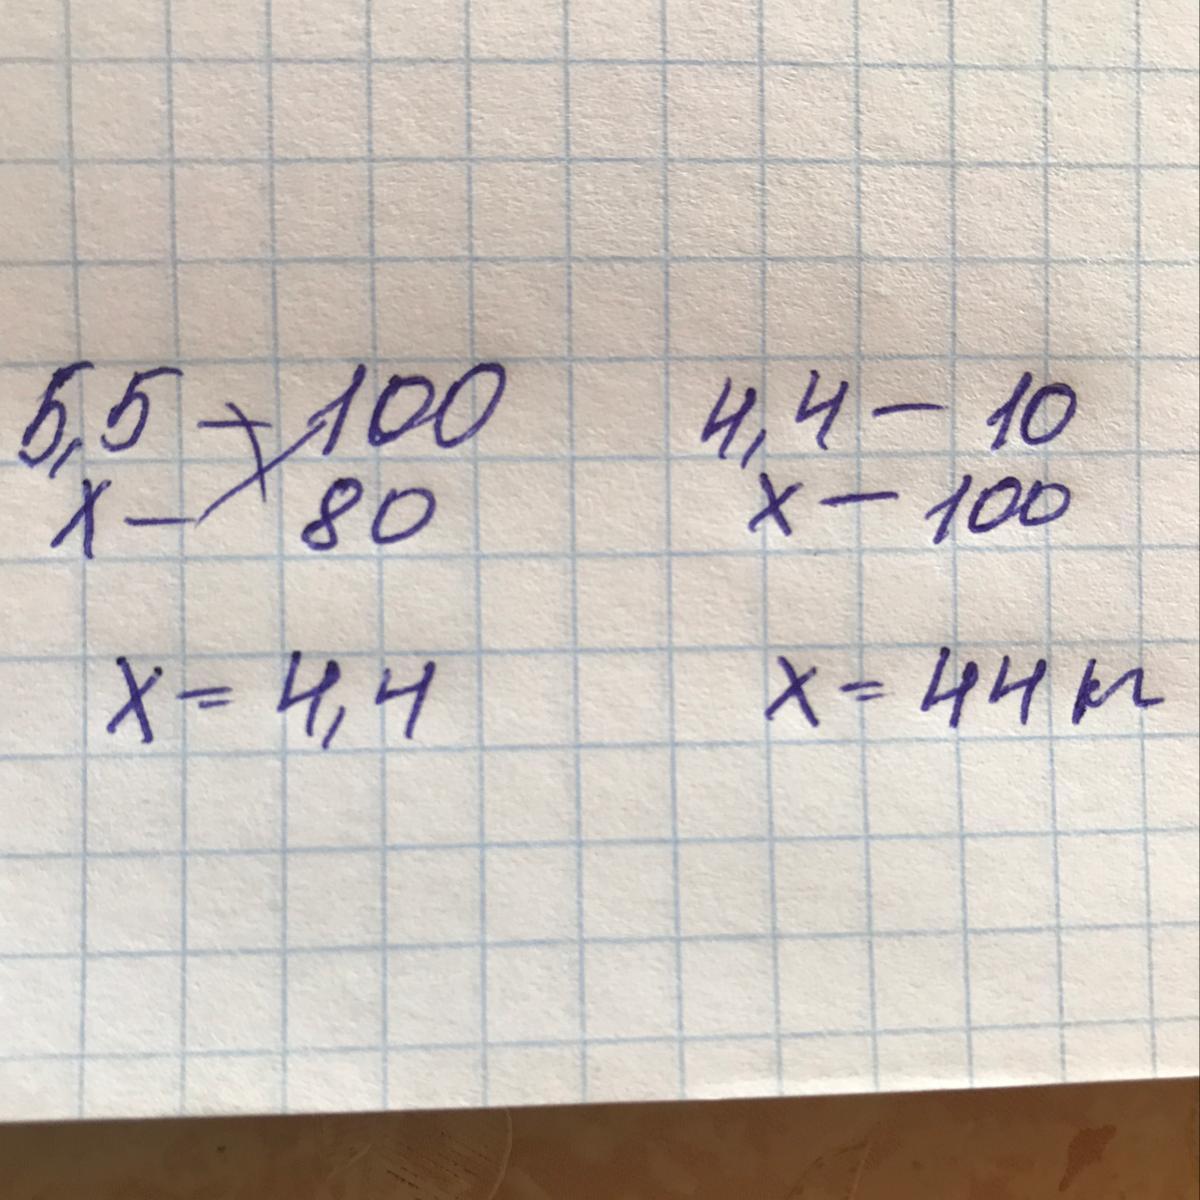 5,5 — 100
x — 80
x = 4,4
4,4 — 10
x — 100
x = 44 кг